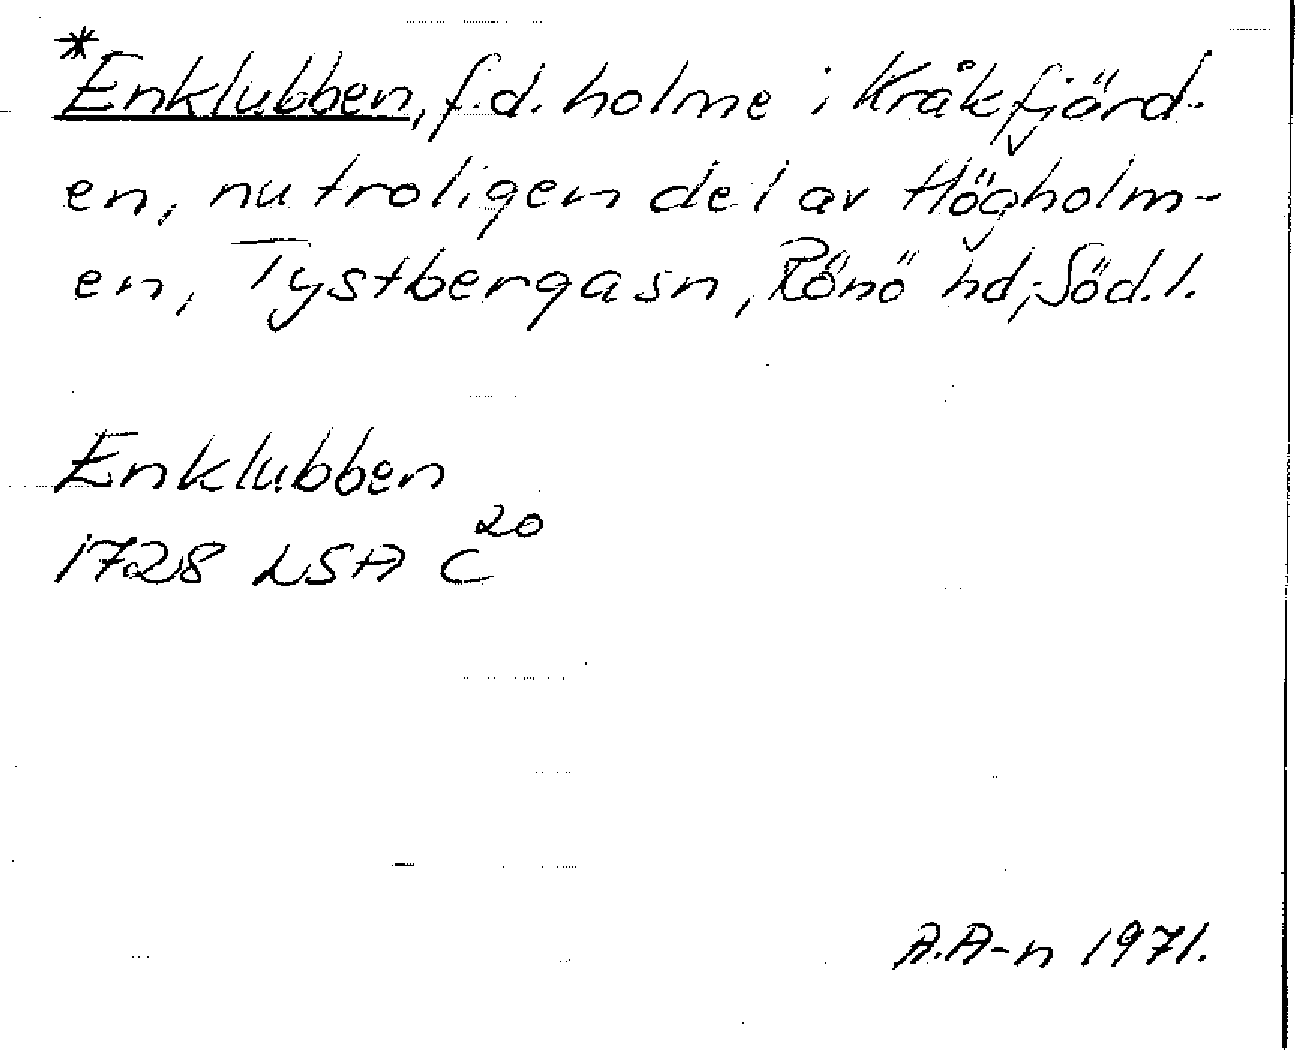 *Enklubben, f.d. holme i Kråkfjärd-
en, nu troligen del av Högholm-
en, Tystbergasn, Rönö hd, Söd.l.
Enklubben
1728 LSA C²⁰
A.A-n 1971.